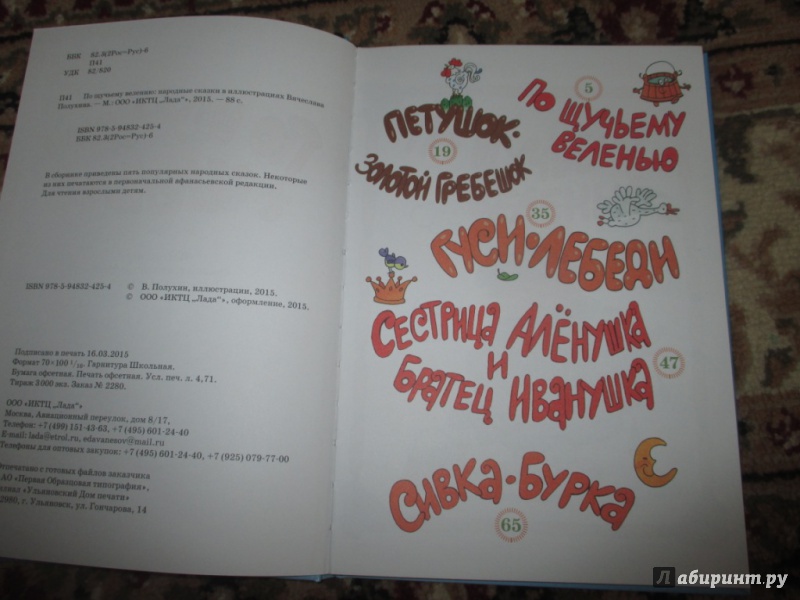 ББК 82.3(2Рос–Рус)-6
П41
УДК 82/820
П41 По щучьему велению: народные сказки в иллюстрациях Вячеслава
Полухина. — М.: ООО «ИКТЦ „Лада“», 2015. — 88 с.
ISBN 978-5-94832-425-4
ББК 82.3(2Рос–Рус)-6
В сборнике приведены пять популярных народных сказок. Некоторые
из них печатаются в первоначальной афанасьевской редакции.
Для чтения взрослыми детям.
ISBN 978-5-94832-425-4 © В. Полухин, иллюстрации, 2015.
© ООО «ИКТЦ „Лада“», оформление, 2015.
Подписано в печать 16.03.2015
Формат 70×100 1/16. Гарнитура Школьная.
Бумага офсетная. Печать офсетная. Усл. печ. л. 4,71.
Тираж 3000 экз. Заказ № 2280.
ООО «ИКТЦ „Лада“»
Москва, Авиационный переулок, дом 8/17,
Телефон: +7 (499) 151-43-63, +7 (495) 601-24-40
E-mail: lada@etrol.ru, edavanesov@mail.ru
Телефоны для оптовых закупок: +7 (495) 601-24-40, +7 (925) 079-77-00
Отпечатано с готовых файлов заказчика
АО «Первая Образцовая типография»,
филиал «Ульяновский Дом печати»
2980, г. Ульяновск, ул. Гончарова, 14
5
По щучьему
веленью
Петушок-
19
золотой гребешок
35
Гуси-лебеди
Сестрица Алёнушка
и
47
братец Иванушка
Сивка-бурка
65
Лабиринт.ру